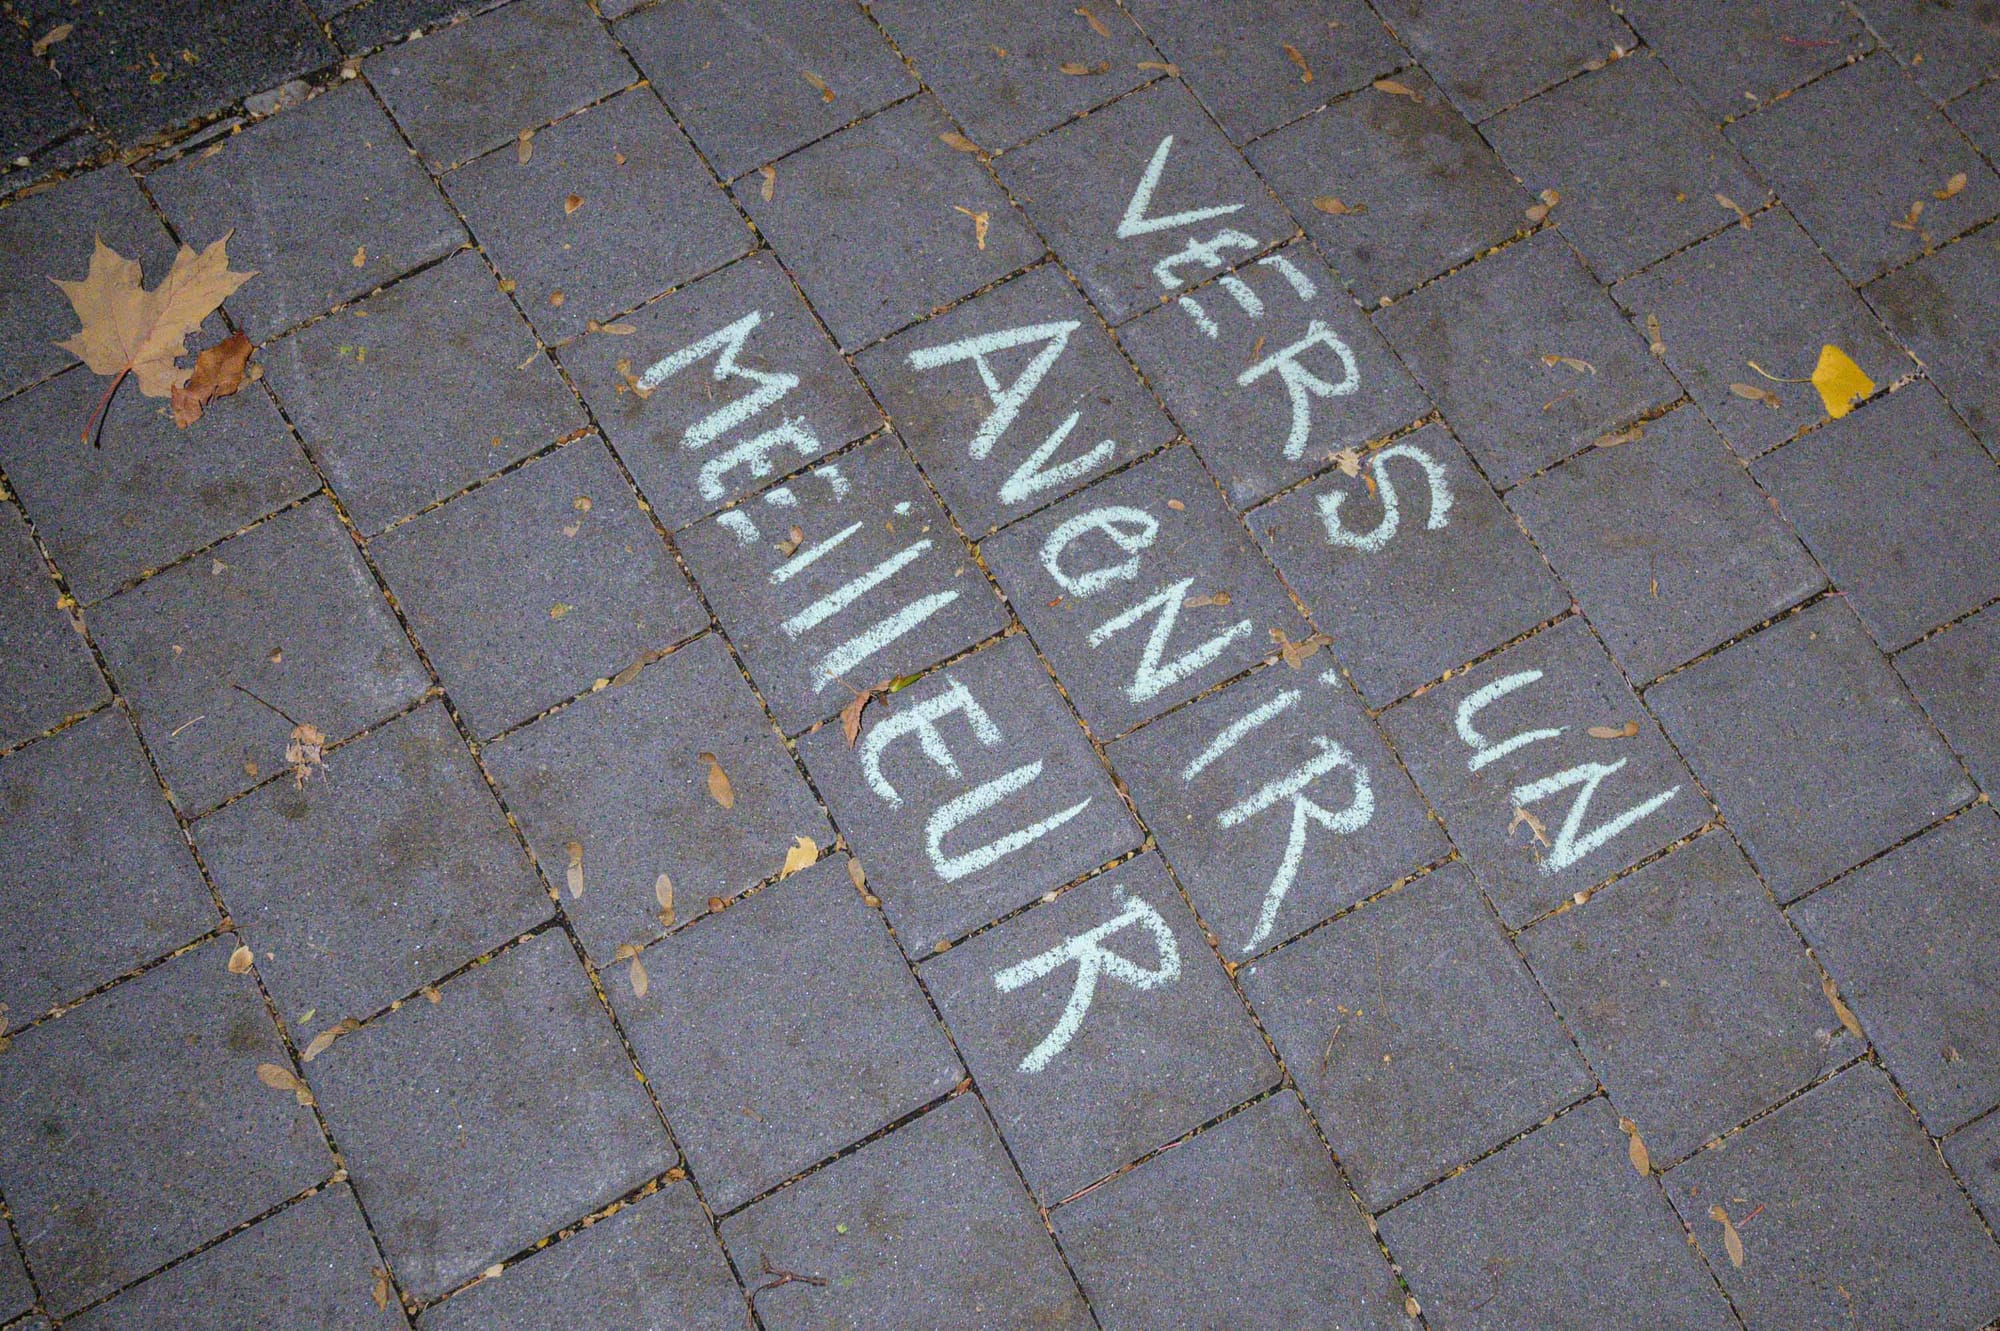 VERS UN
AVeNiR
MEillEUR